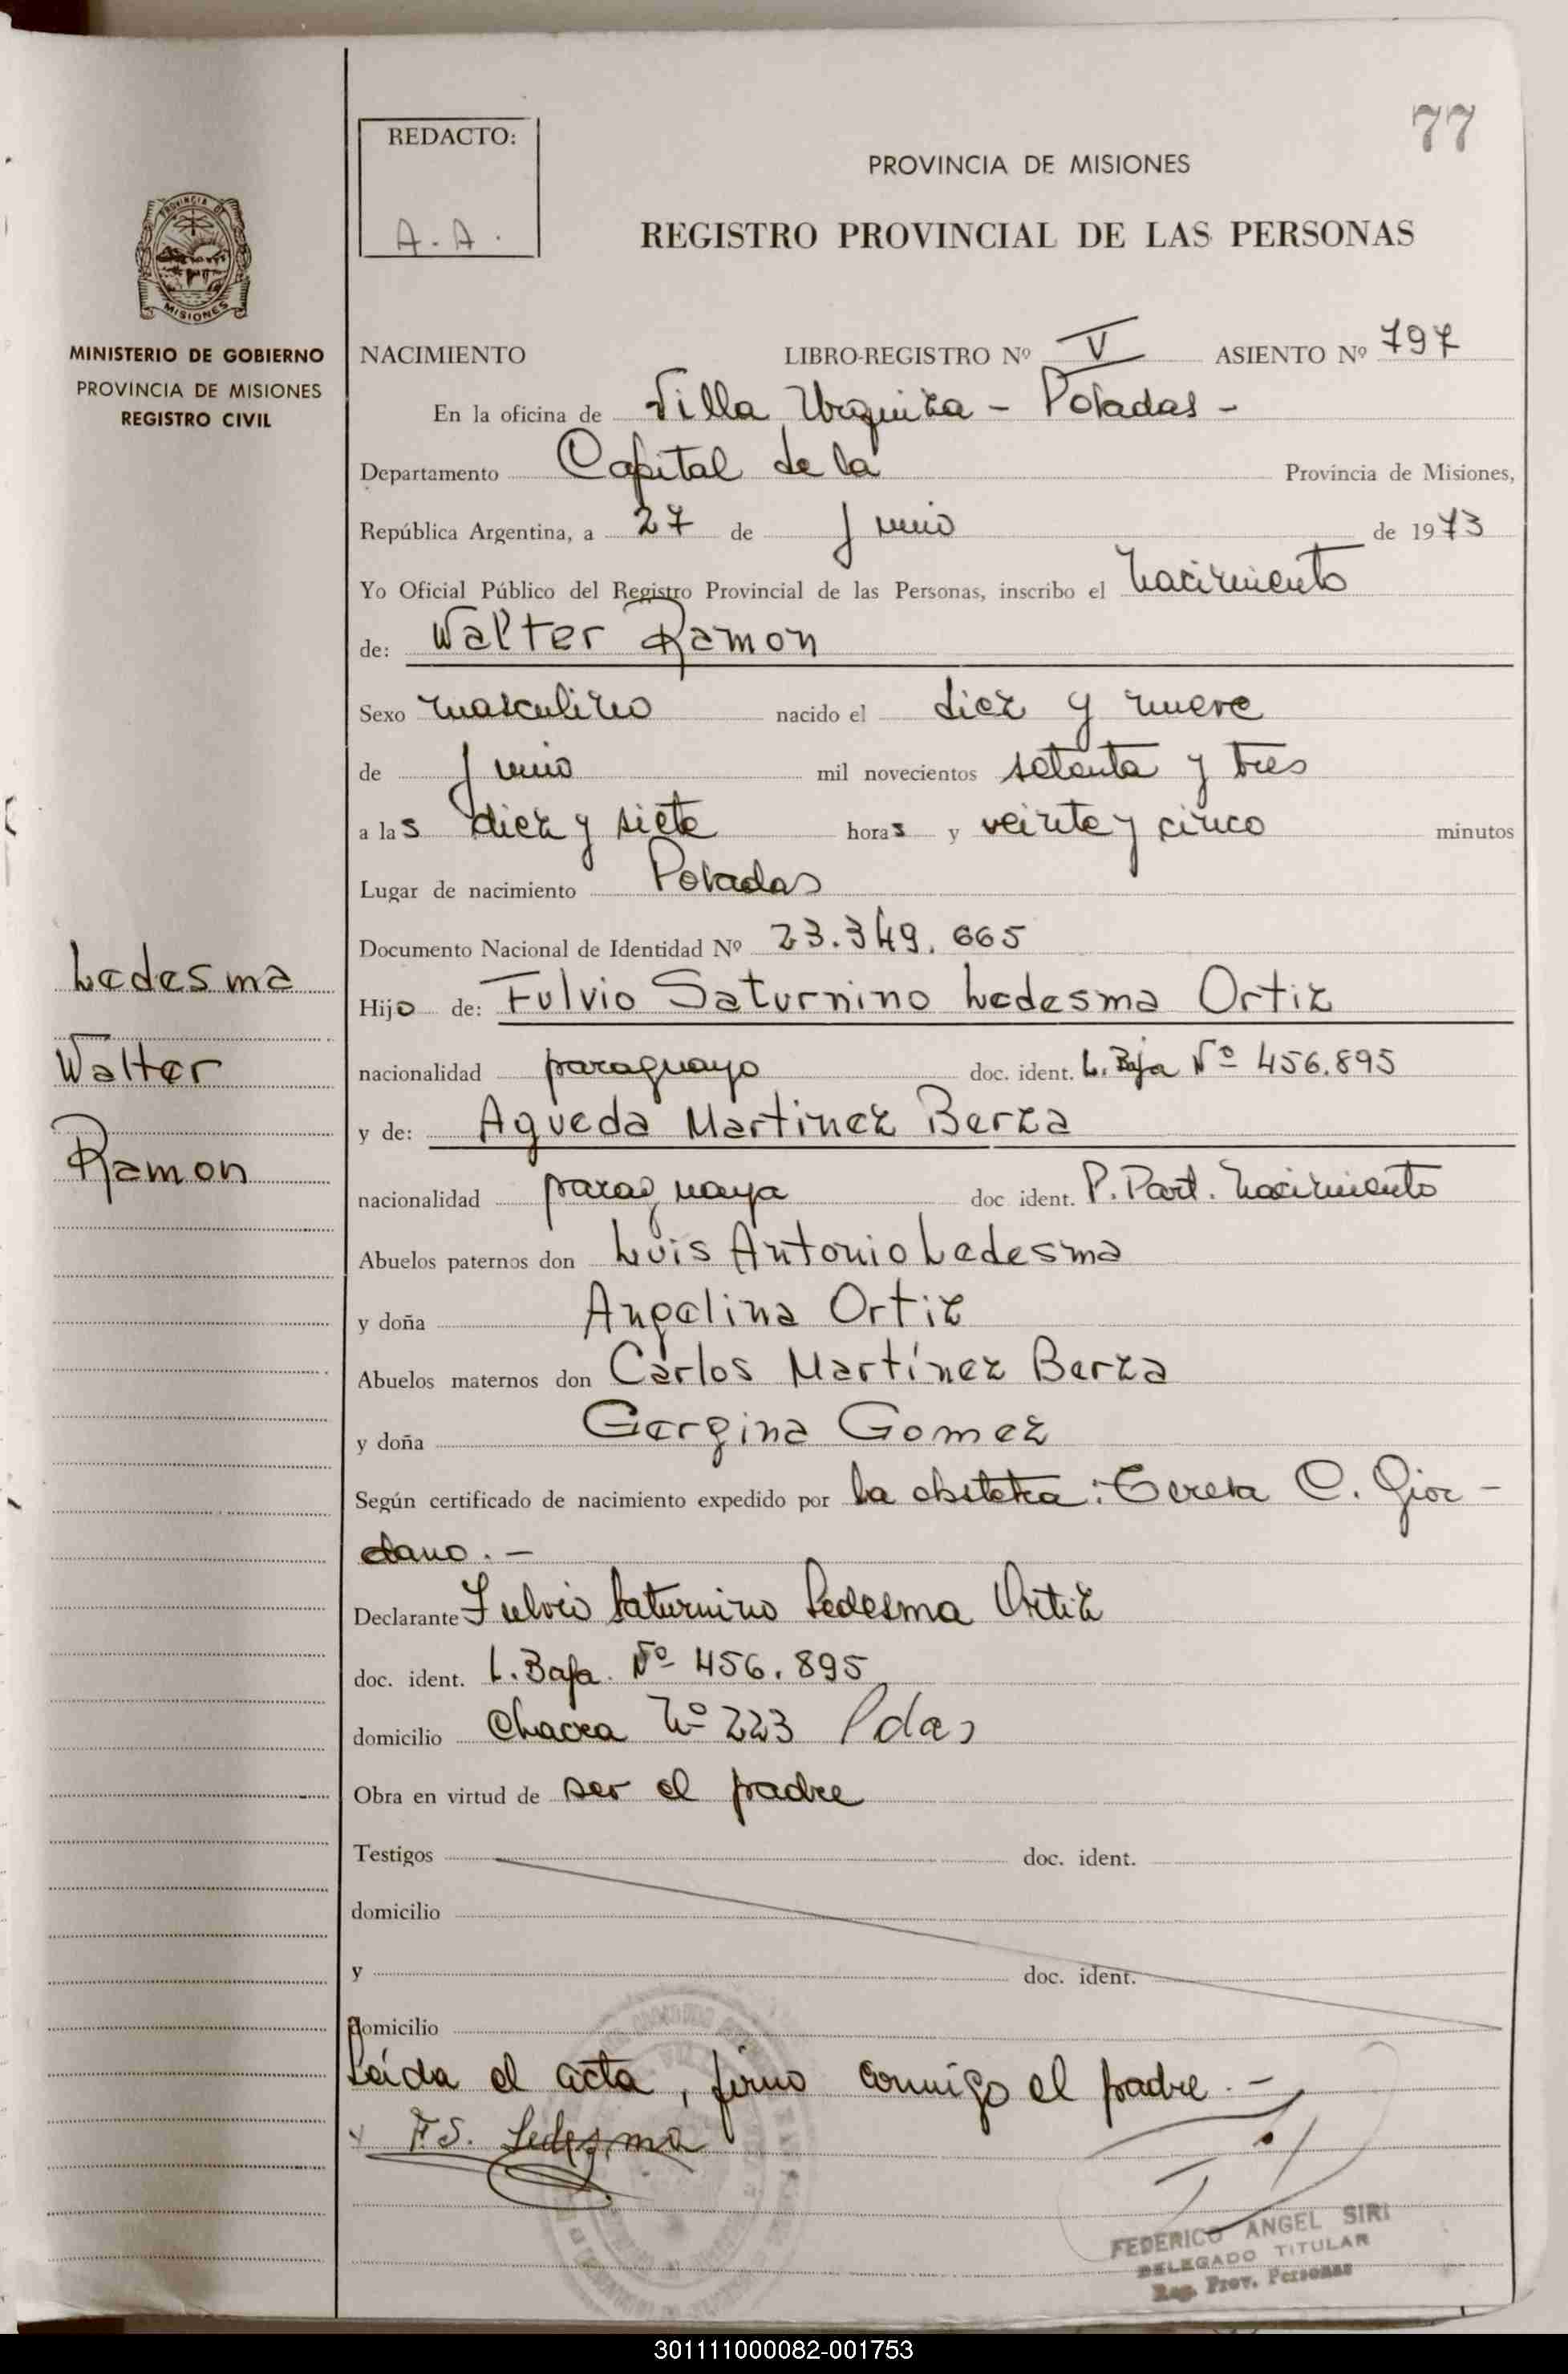 77
REDACTO:
A. A.
PROVINCIA DE MISIONES
REGISTRO PROVINCIAL DE LAS PERSONAS
PROVINCIA DE
MISIONES
MINISTERIO DE GOBIERNO
PROVINCIA DE MISIONES
REGISTRO CIVIL
NACIMIENTO LIBRO-REGISTRO Nº V ASIENTO Nº 797
En la oficina de Villa Urquiza - Posadas -
Departamento Capital de la Provincia de Misiones,
República Argentina, a 27 de Junio de 1973
Yo Oficial Público del Registro Provincial de las Personas, inscribo el nacimiento
de: Walter Ramon
Sexo masculino nacido el diez y nueve
de Junio mil novecientos setenta y tres
a las diez y siete horas y veinte y cinco minutos
Lugar de nacimiento Posadas
Documento Nacional de Identidad Nº 23.349.665
Hijo de: Fulvio Saturnino Ledesma Ortiz
nacionalidad paraguayo doc. ident. L. Baja Nº 456.895
y de: Agueda Martinez Berza
nacionalidad paraguaya doc ident. P. Part. Nacimiento
Abuelos paternos don Luis Antonio Ledesma
y doña Angelina Ortiz
Abuelos maternos don Carlos Martínez Berza
y doña Gergina Gomez
Según certificado de nacimiento expedido por la obstetra: Teresa C. Gior-
dano. -
Declarante Fulvio Saturnino Ledesma Ortiz
doc. ident. L. Baja. Nº 456.895
domicilio Chacra Nº 223 Pdas
Obra en virtud de ser el padre
Testigos doc. ident.
domicilio
y doc. ident.
domicilio
Leída el acta, firma conmigo el padre. -
F.S. Ledezma
FEDERICO ANGEL SIRI
DELEGADO TITULAR
Reg. Prov. Personas
Ledesma
Walter
Ramon
301111000082-001753